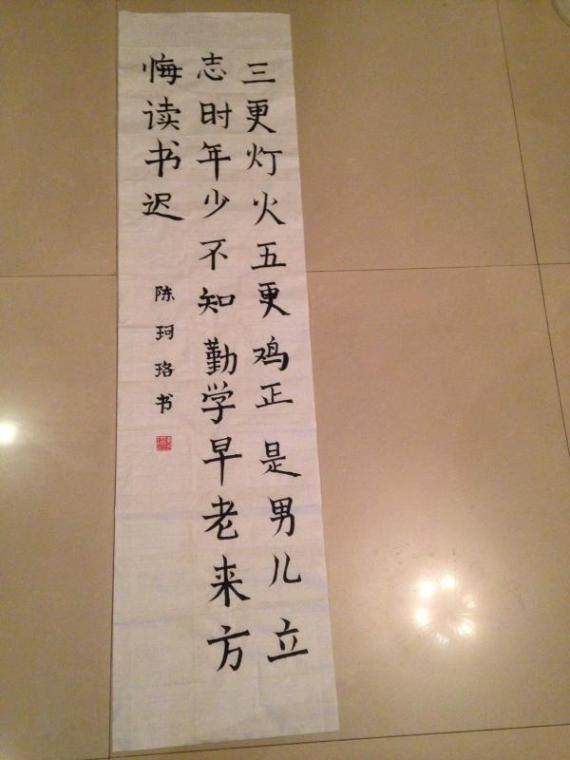 三更灯火五更鸡正是男儿立
志时年少不知勤学早老来方
悔读书迟
陈珂珞书